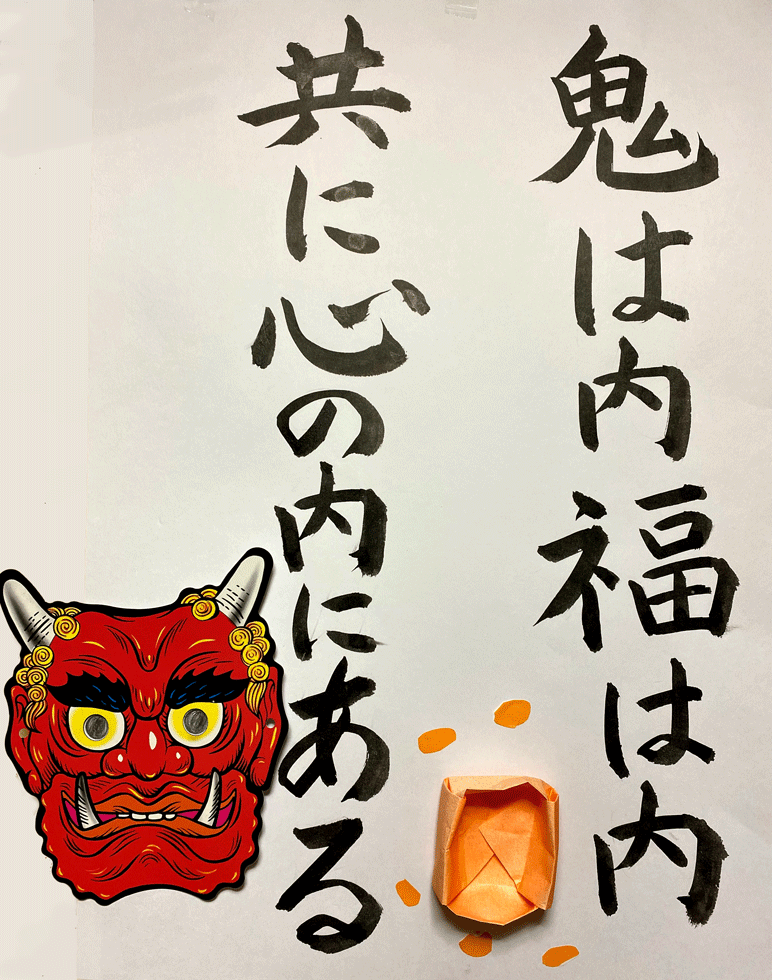 鬼は内福は内
共に心の内にある